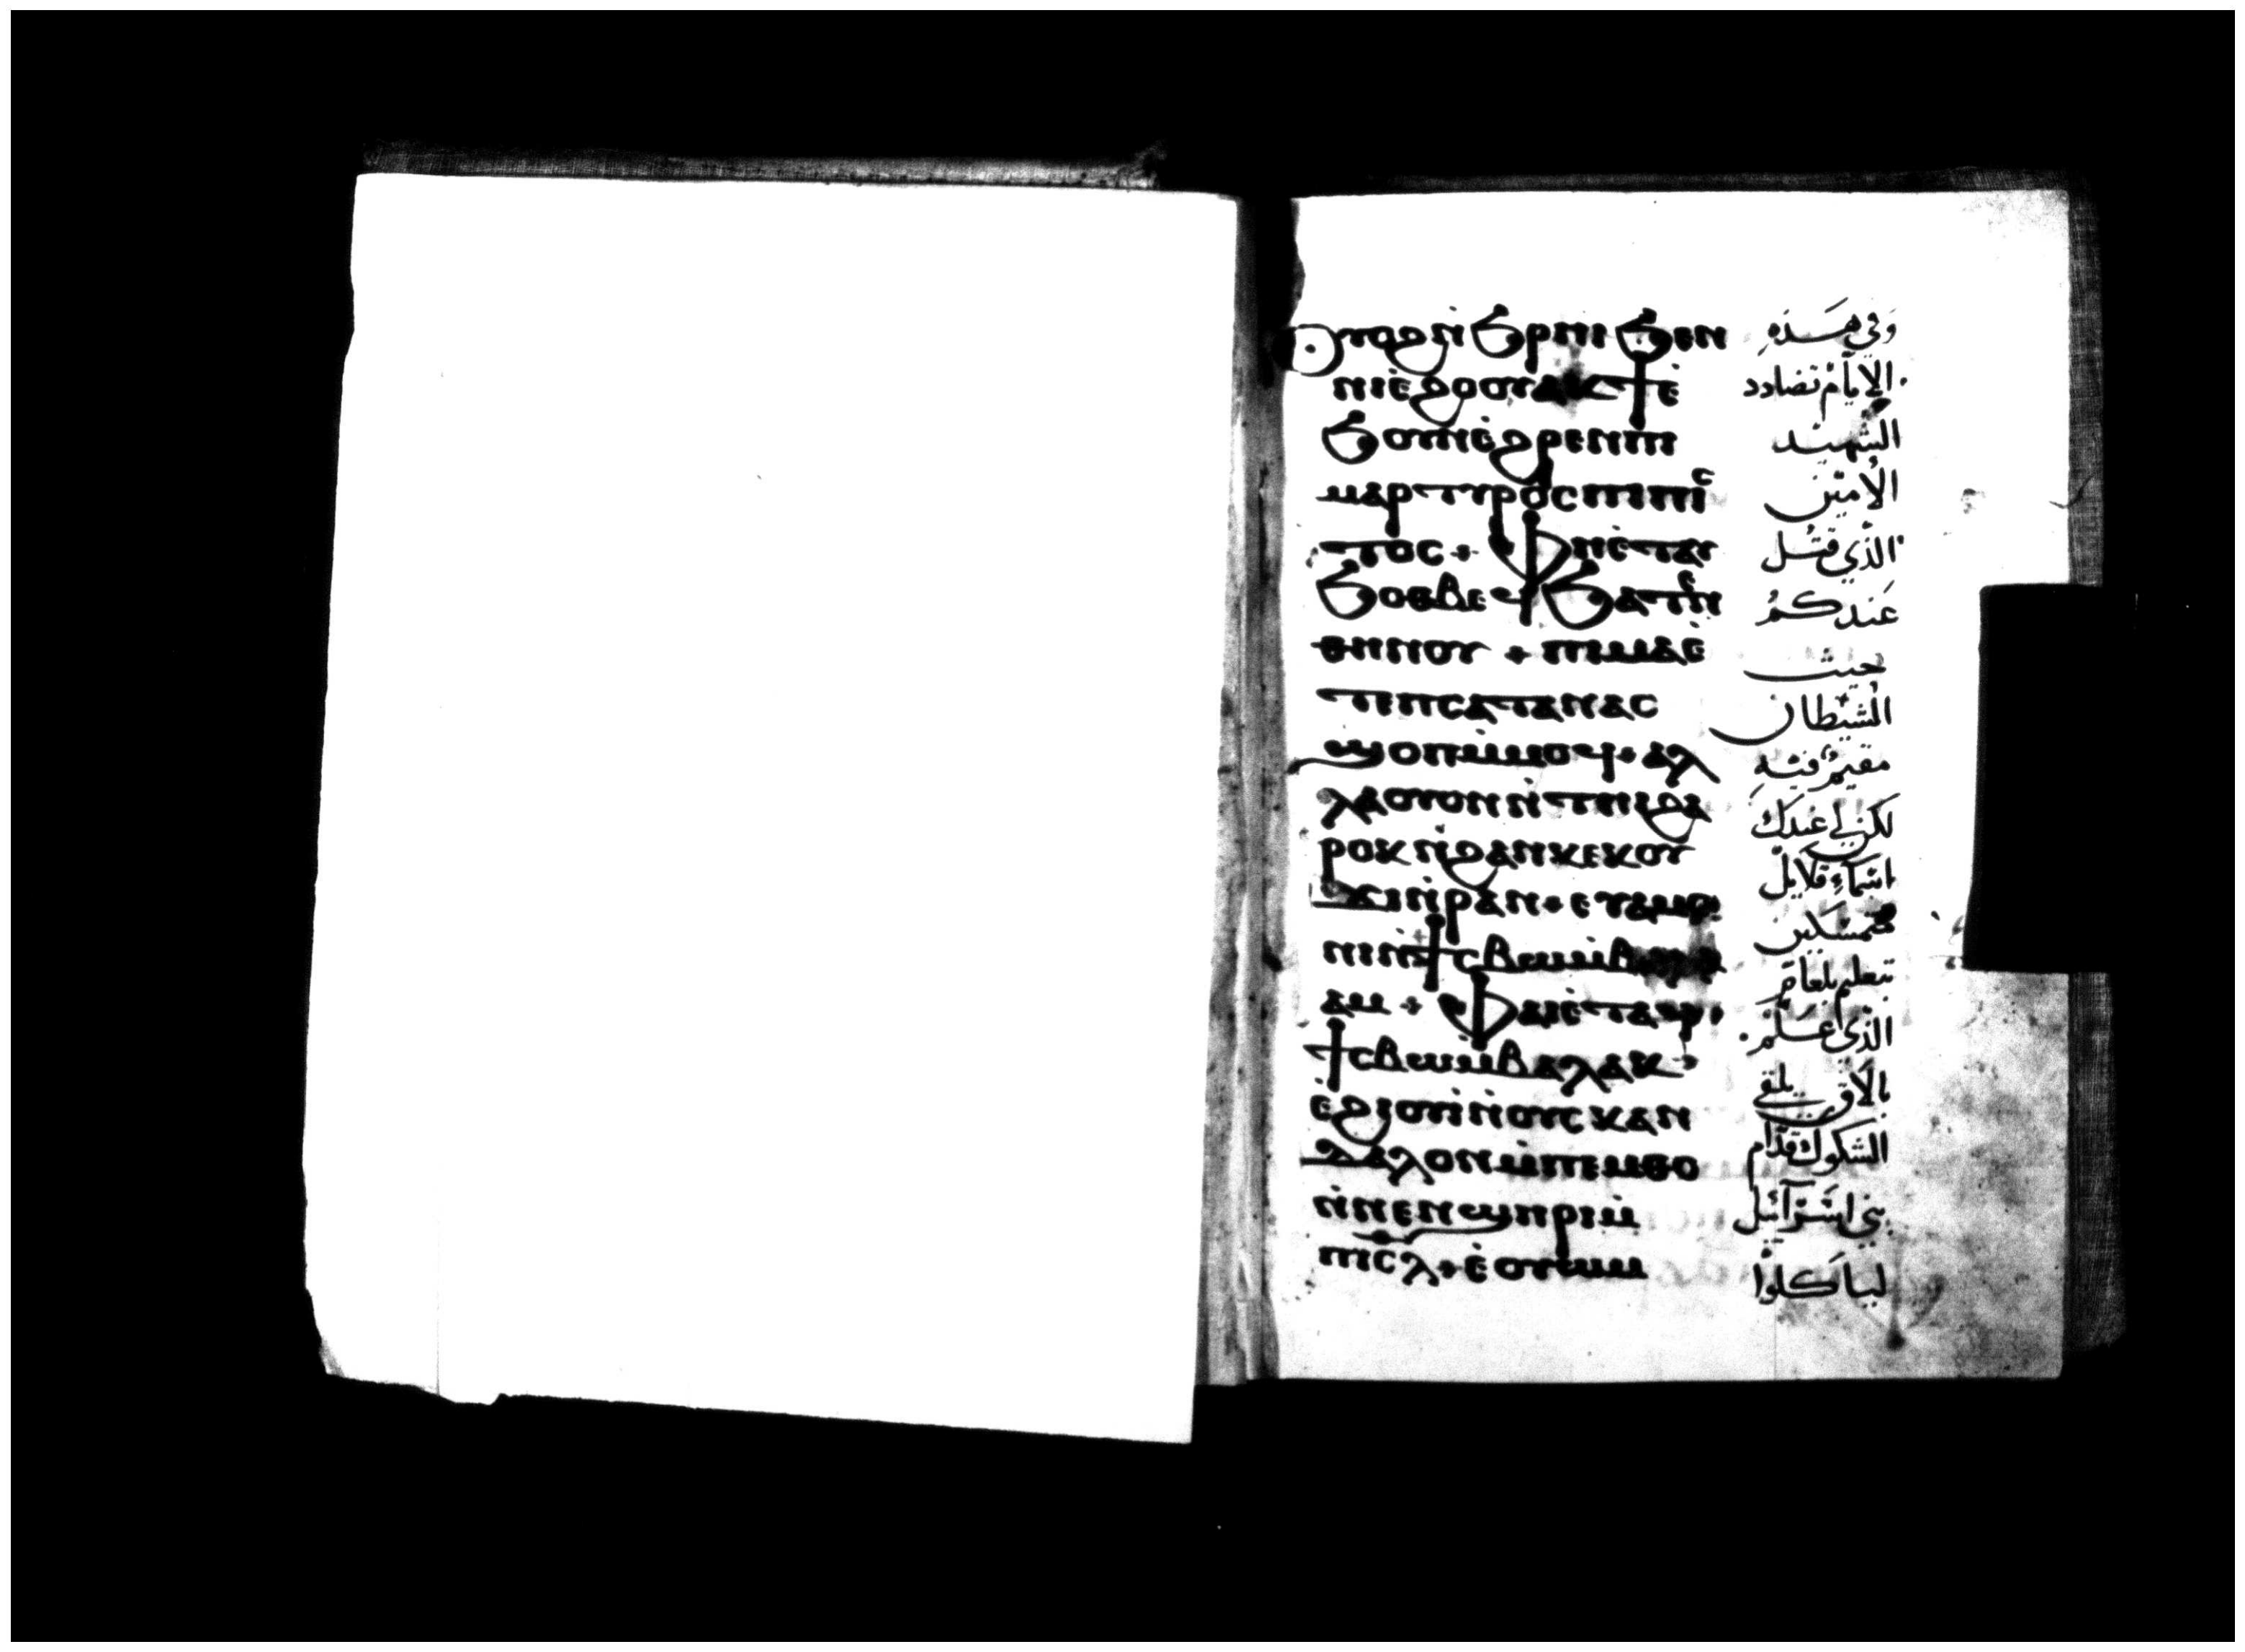 ⲟⲩⲟϩ ⲛ̀ϧⲣⲏⲓ ϧⲉⲛ
ⲛⲓⲉ̀ϩⲟⲟⲩ ⲁⲕϯ ⲉ̀
ϧⲟⲩⲛ ⲉ̀ϩⲣⲉⲛ ⲡⲓ
ⲙⲁⲣⲧⲩⲣⲟⲥ ⲡⲓⲡⲓⲥ
ⲧⲟⲥ + ⲫⲏ ⲉ̀ⲧⲁⲩ
ϧⲟⲑⲃⲉϥ ϧⲁⲧⲉⲛ
ⲑⲏⲛⲟⲩ + ⲡⲓⲙⲁ ⲉ̀
ⲧⲉ ⲡⲥⲁⲧⲁⲛⲁⲥ
ϣⲟⲡ ⲙ̀ⲙⲟϥ + ⲁⲗ
ⲗⲁ ⲟⲩⲟⲛ ⲛ̀ⲧⲏⲓ ϩⲁ
ⲣⲟⲕ ⲛ̀ϩⲁⲛⲕⲉⲕⲟⲩ
ϫⲓ ⲛ̀ⲣⲁⲛ + ⲉⲩⲁⲙⲟ
ⲛⲓ ⲛ̀ϯⲥⲃⲱ ⲙ̀ⲃⲁⲗⲁ
ⲁⲙ + ⲫⲁⲓ ⲉ̀ⲧⲁϥ
ϯⲥⲃⲱ ⲙ̀ⲃⲁⲗⲁⲕ
ⲉ̀ϩⲓⲟⲩⲓ ⲛ̀ⲟⲩⲥⲕⲁⲛ
ⲇⲁⲗⲟⲛ ⲙ̀ⲡⲉⲙⲑⲟ
ⲛ̀ⲛⲉⲛϣⲏⲣⲓ ⲙ̀
ⲡⲓⲥ̅ⲗ + ⲉ̀ⲟⲩⲱⲙ
وفي هَذِهِ
الايام تضادد
الشهيد
الامين
الذي قتل
عَندكم
حيث
الشيطان
مقيم فيه
لكن لي عندك
اسماء قلايل
متمسكين
بتعليم بلعام
الذي علم
بالاق يلقي
الشكوك قدام
بني اسرائيل
لياكلوا